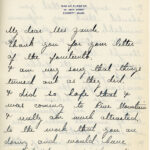 My dear Mrs
Thank you for your letter
of the fourteenth.
I am very sorry that things
turned out as they did.
I did so hope that I
was coming to Blue Mountain
I really am much attracted
to the work that you are
doing and would have